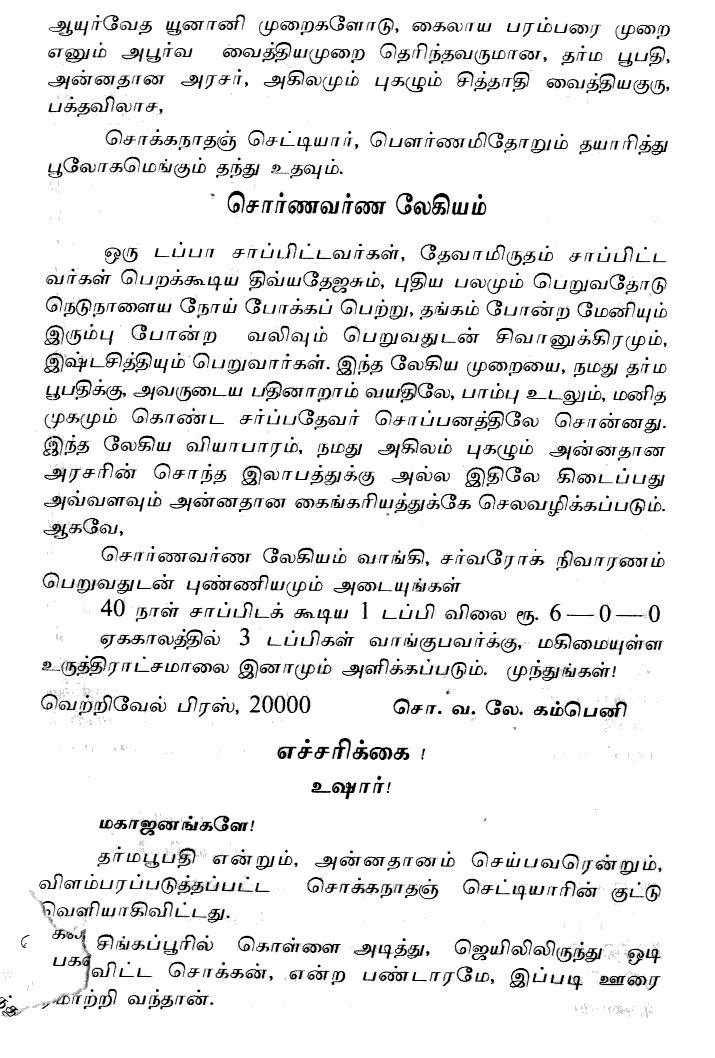 ஆயுர்வேத யூனானி முறைகளோடு, கைலாய பரம்பரை முறை
எனும் அபூர்வ வைத்தியமுறை தெரிந்தவருமான, தர்ம பூபதி,
அன்னதான அரசர், அகிலமும் புகழும் சித்தாதி வைத்தியகுரு,
பக்தவிலாச,
சொக்கநாதஞ் செட்டியார், பௌர்ணமிதோறும் தயாரித்து
பூலோகமெங்கும் தந்து உதவும்.
சொர்ணவர்ண லேகியம்
ஒரு டப்பா சாப்பிட்டவர்கள், தேவாமிருதம் சாப்பிட்ட
வர்கள் பெறக்கூடிய திவ்யதேஜசும், புதிய பலமும் பெறுவதோடு
நெடுநாளைய நோய் போக்கப் பெற்று, தங்கம் போன்ற மேனியும்
இரும்பு போன்ற வலிவும் பெறுவதுடன் சிவானுக்கிரமும்,
இஷ்டசித்தியும் பெறுவார்கள். இந்த லேகிய முறையை, நமது தர்ம
பூபதிக்கு, அவருடைய பதினாறாம் வயதிலே, பாம்பு உடலும், மனித
முகமும் கொண்ட சர்ப்பதேவர் சொப்பனத்திலே சொன்னது.
இந்த லேகிய வியாபாரம், நமது அகிலம் புகழும் அன்னதான
அரசரின் சொந்த இலாபத்துக்கு அல்ல இதிலே கிடைப்பது
அவ்வளவும் அன்னதான கைங்கரியத்துக்கே செலவழிக்கப்படும்.
ஆகவே,
சொர்ணவர்ண லேகியம் வாங்கி, சர்வரோக நிவாரணம்
பெறுவதுடன் புண்ணியமும் அடையுங்கள்
40 நாள் சாப்பிடக் கூடிய 1 டப்பி விலை ரூ. 6—0—0
ஏககாலத்தில் 3 டப்பிகள் வாங்குபவர்க்கு, மகிமையுள்ள
உருத்திராட்சமாலை இனாமும் அளிக்கப்படும். முந்துங்கள்!
வெற்றிவேல் பிரஸ், 20000 சொ. வ. லே. கம்பெனி
எச்சரிக்கை !
உஷார்!
மகாஜனங்களே!
தர்மபூபதி என்றும், அன்னதானம் செய்பவரென்றும்,
விளம்பரப்படுத்தப்பட்ட சொக்கநாதஞ் செட்டியாரின் குட்டு
வெளியாகிவிட்டது.
சிங்கப்பூரில் கொள்ளை அடித்து, ஜெயிலிலிருந்து ஓடி
விட்ட சொக்கன், என்ற பண்டாரமே, இப்படி ஊரை
ஏமாற்றி வந்தான்.